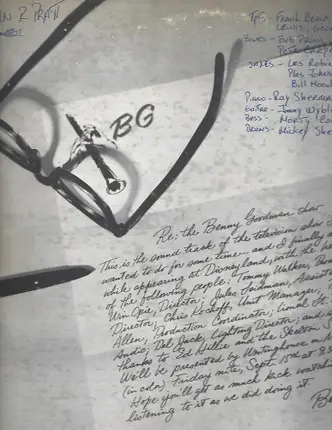 N R PRATT
TPTS - FRANK BEACH
BONES - BOB
SAXES - LES ROBIN
PLAS JOHN
BILL HOOD
PIANO - RAY SHERMAN
GUITAR - JIMMY WYBL
BASS - MORTY CO
DRUMS - MICKEY SHE
BG
Re: the Benny Goodman show
This is the sound track of the television show
wanted to do for some time - and I finally
while appearing at Disneyland, with the
of the following people: Tommy Walker,
Win Opie, Director; Jules Sindman,
Director; Chris Kochoff, Unit Manager,
Allen, Production Coordinator; Lionel
Audio; Del Jack, Lighting Director; and
thanks to Ed Hillie and the Skelton
We'll be presented by Westinghouse
(in color) Friday nite, Sept. 15th at
Hope you'll get as much kick watching
listening to it as we did doing it.